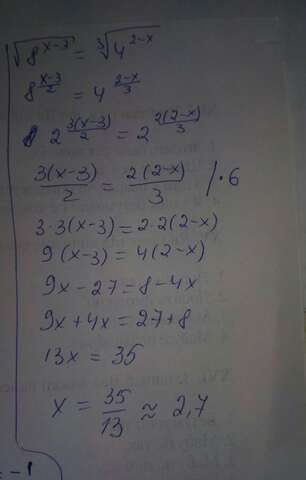 √(8^(x-3)) = ∛(4^(2-x))
8^((x-3)/2) = 4^((2-x)/3)
2^(3(x-3)/2) = 2^(2(2-x)/3)
3(x-3)/2 = 2(2-x)/3 /·6
3·3(x-3)=2·2(2-x)
9(x-3)=4(2-x)
9x-27=8-4x
9x+4x=27+8
13x=35
x = 35/13 ≈ 2,7
= -1